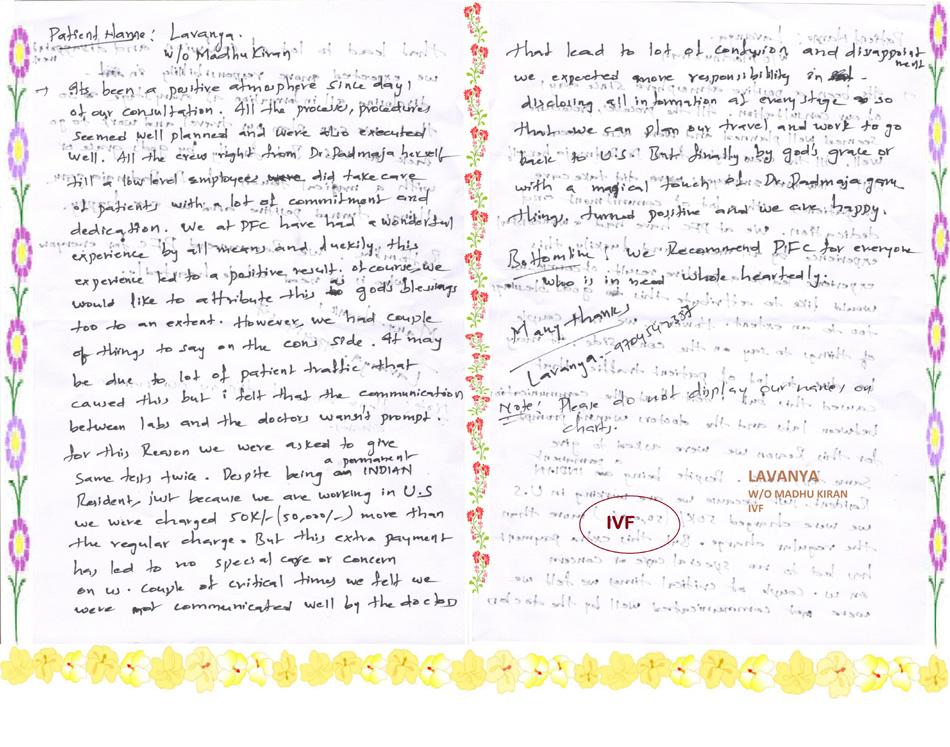 Patient Name: Lavanya.
W/o Madhu Kiran
→ Its been a positive atmosphere since day 1
of our consultation. All the process, procedures
seemed well planned and were also executed
well. All the crew right from Dr. Padmaja herself
till a low level employees were did take care
of patients with a lot of commitment and
dedication. We at PFC have had a wonderful
experience by all means and luckily, this
experience led to a positive result. ofcourse, we
would like to attribute this to god's blessings
too to an extent. However, we had couple
of things to say on the cons side. It may
be due to lot of patient traffic that
caused this but i felt that the communication
between labs and the doctors wansn't prompt.
for this Reason we were asked to give
a permanent
Same tests twice. Despite being an INDIAN
Resident, just because we are working in U.S
we were charged 50K/- (50,000/-) more than
the regular charge. But this extra payment
has led to no special care or concern
on us. Couple of critical times we felt we
were not communicated well by the doctos
that lead to lot of confusion and disappoint
ment
we expected more responsibility in
disclosing all information at every stage so
that we can plan our travel and work to go
back to U.S. But finally by god's grace or
with a magical touch of Dr. Padmaja garu
things turned positive and we are happy.
Bottomline: We Recommend PFC for everyone
who is in need whole heartedly.
Many thanks
Lavanya:-
Note: Please do not display our names on
charts.
LAVANYA
W/O MADHU KIRAN
IVF
IVF